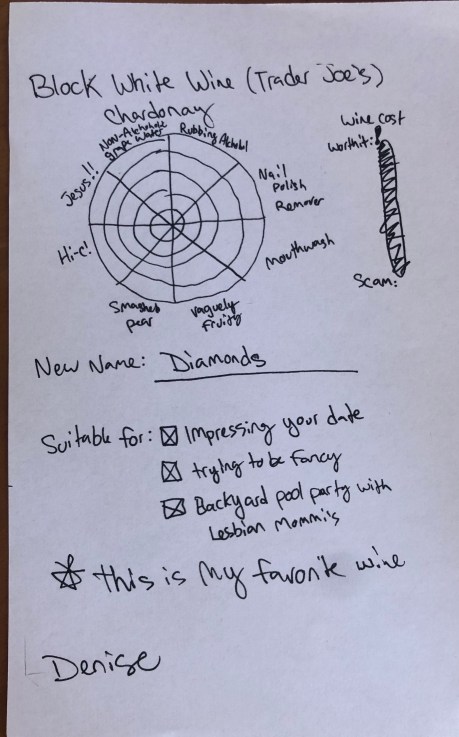 Block White Wine (Trader Joe's)
Chardonay
Non-Alchoholic
grape water
Rubbing Alchohol
Jesus!!
Nail
Polish
Remover
Hi-c!
Mouthwash
Smashed
pear
vaguely
fruity
wine cost
worth it:
Scam:
New Name: Diamonds
Suitable for: ☒ Impressing your date
☒ trying to be fancy
☒ Backyard pool party with
Lesbian Mommis
☆ this is my favorite wine
Denise